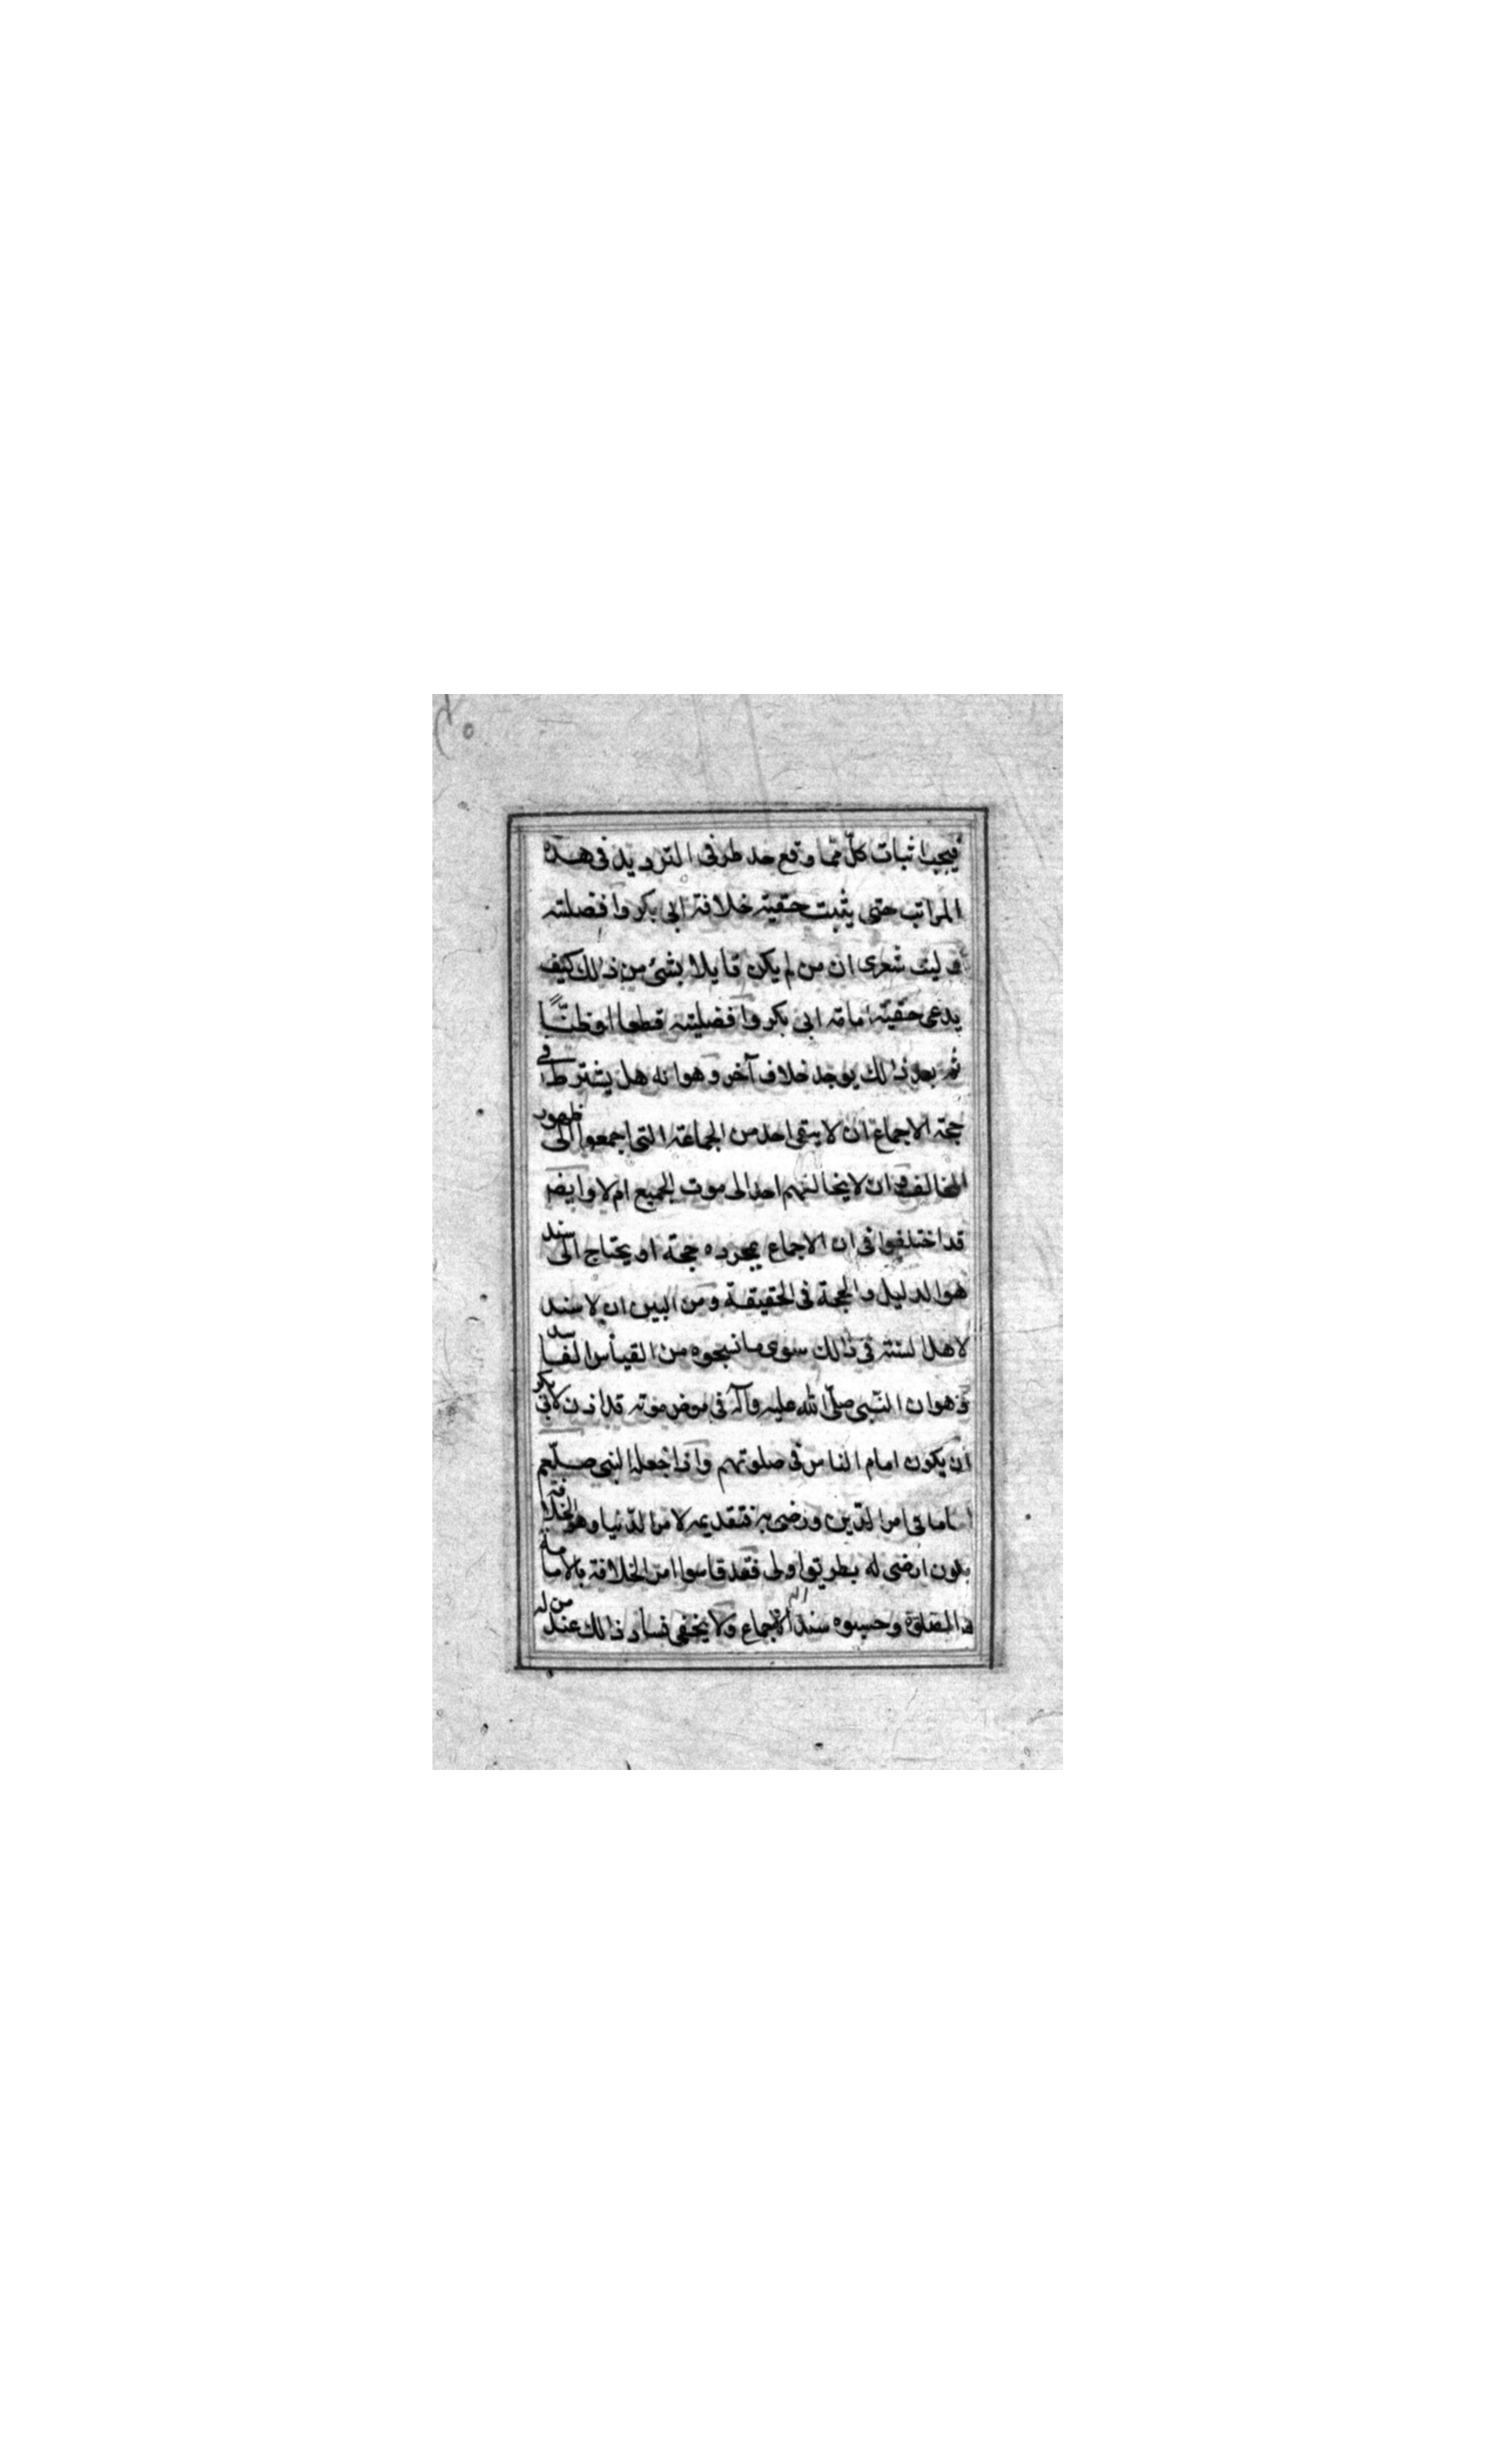 فيجب اثبات كلّ ممّا وقع احد طرفى الترديد فى هذه
المراتب حتى يثبت حقية خلافة ابى بكر وافضلته
فليت شعرى ان من لم يكن قايلا بشئ من ذلك كيف
يدعى حقية امامة ابى بكر وافضليته قطعا او ظنًّا
ثم بعد ذلك يوجد خلاف آخر وهو انه هل يشترط فى
حجة الاجماع ان لا يبقى احد من الجماعة التى اجمعوا الى ظهور
المخالف وان لا يخالفهم احد الى موت الجميع ام لا وايضر
قد اختلفوا فى ان الاجماع بمجرده حجة او يحتاج الى سند
هو الدليل والحجة فى الحقيقة ومن البين ان لا سند
لاهل السنة فى ذلك سوى ما نسجوه من القياس الفاسد
وهو ان النبى صلّى الله عليه وآله فى مرض موته قد اذن لابى بكر
ان يكون امام الناس فى صلوتهم واذا جعله النبى صلعم
اماما فى امر الدين ورضى به فتقديمه لامر الدنيا وهو الخلافة
يكون ارضى له بطريق اولى فقد قاسوا امر الخلافة بالامامة
فى الصلوة وحسبوه سند الاجماع ولا يخفى فساد ذلك عند من له